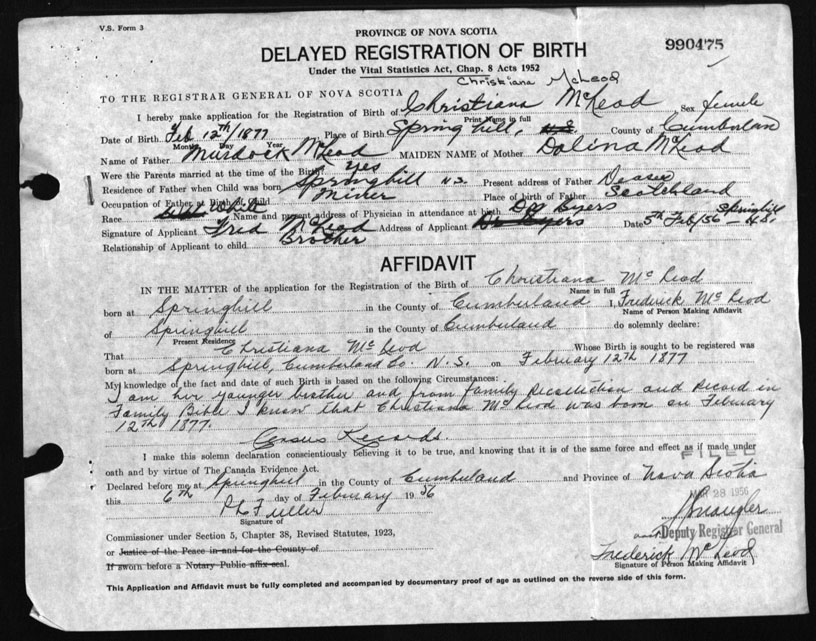 V.S. Form 3
PROVINCE OF NOVA SCOTIA
990475
DELAYED REGISTRATION OF BIRTH
Under the Vital Statistics Act, Chap. 8 Acts 1952
Christiana McLeod
TO THE REGISTRAR GENERAL OF NOVA SCOTIA
I hereby make application for the Registration of Birth of Christiana McLeod Sex female
Print Name in full
Date of Birth Feb 12th/1877 Place of Birth Spring hill, N.S. County of Cumberland
Month Day Year
Name of Father Murdock McLeod MAIDEN NAME of Mother Dolina McLeod
Were the Parents married at the time of the Birth Yes
Residence of Father when Child was born Springhill N.S. Present address of Father
Occupation of Father at Birth of Child Miner Place of birth of Father Scotchland
Race White Name and present address of Physician in attendance at birth Dr Byers
Signature of Applicant Fred McLeod Address of Applicant Dr Byers Date 5th Feb/56 Springhill N.S.
Relationship of Applicant to child Brother
AFFIDAVIT
IN THE MATTER of the application of the Registration of the Birth of Christiana McLeod
Name in full
born at Springhill in the County of Cumberland I, Frederick McLeod
Name of Person Making Affidavit
of Springhill in the County of Cumberland do solemnly declare:
Present Residence
That Christiana McLeod Whose Birth is sought to be registered was
born at Springhill, Cumberland Co. N.S. on February 12th 1877
My knowledge of the fact and date of such Birth is based on the following Circumstances:
I am her younger brother and from family recollection and record in
Family Bible I know that Christiana McLeod was born on February
12th 1877.
Census Records.
I make this solemn declaration conscientiously believing it to be true, and knowing that it is of the same force and effect as if made under
oath and by virtue of The Canada Evidence Act.
FILED
Declared before me at Springhill in the County of Cumberland and Province of Nova Scotia
this 6th day of February 1956
MAR 28 1956
Signature of
Deputy Registrar General
Commissioner under Section 5, Chapter 38, Revised Statutes, 1923,
or Justice of the Peace in and for the County of
Frederick McLeod
Signature of Person Making Affidavit
If sworn before a Notary Public affix seal.
This Application and Affidavit must be fully completed and accompanied by documentary proof of age as outlined on the reverse side of this form.